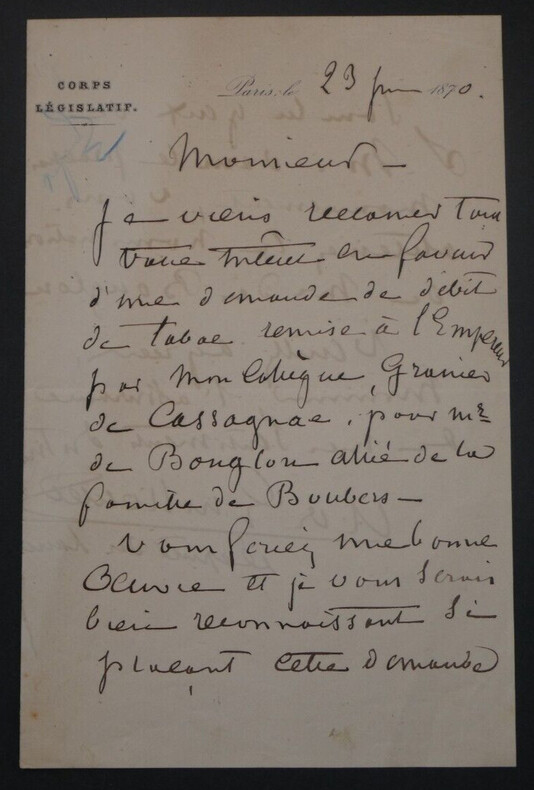 CORPS
LÉGISLATIF.
Paris, le 23 juin 1870.
Monsieur —
Je viens réclamer tout
votre intérêt en faveur
d'une demande de débit
de tabac remise à l'Empereur
par mon collègue, Granier
de Cassagnac, pour mr
de Bouglon allié de la
famille de Boubers —
Vous feriez une bonne
Oeuvre et je vous serais
bien reconnaissant si
plaçant cette demande